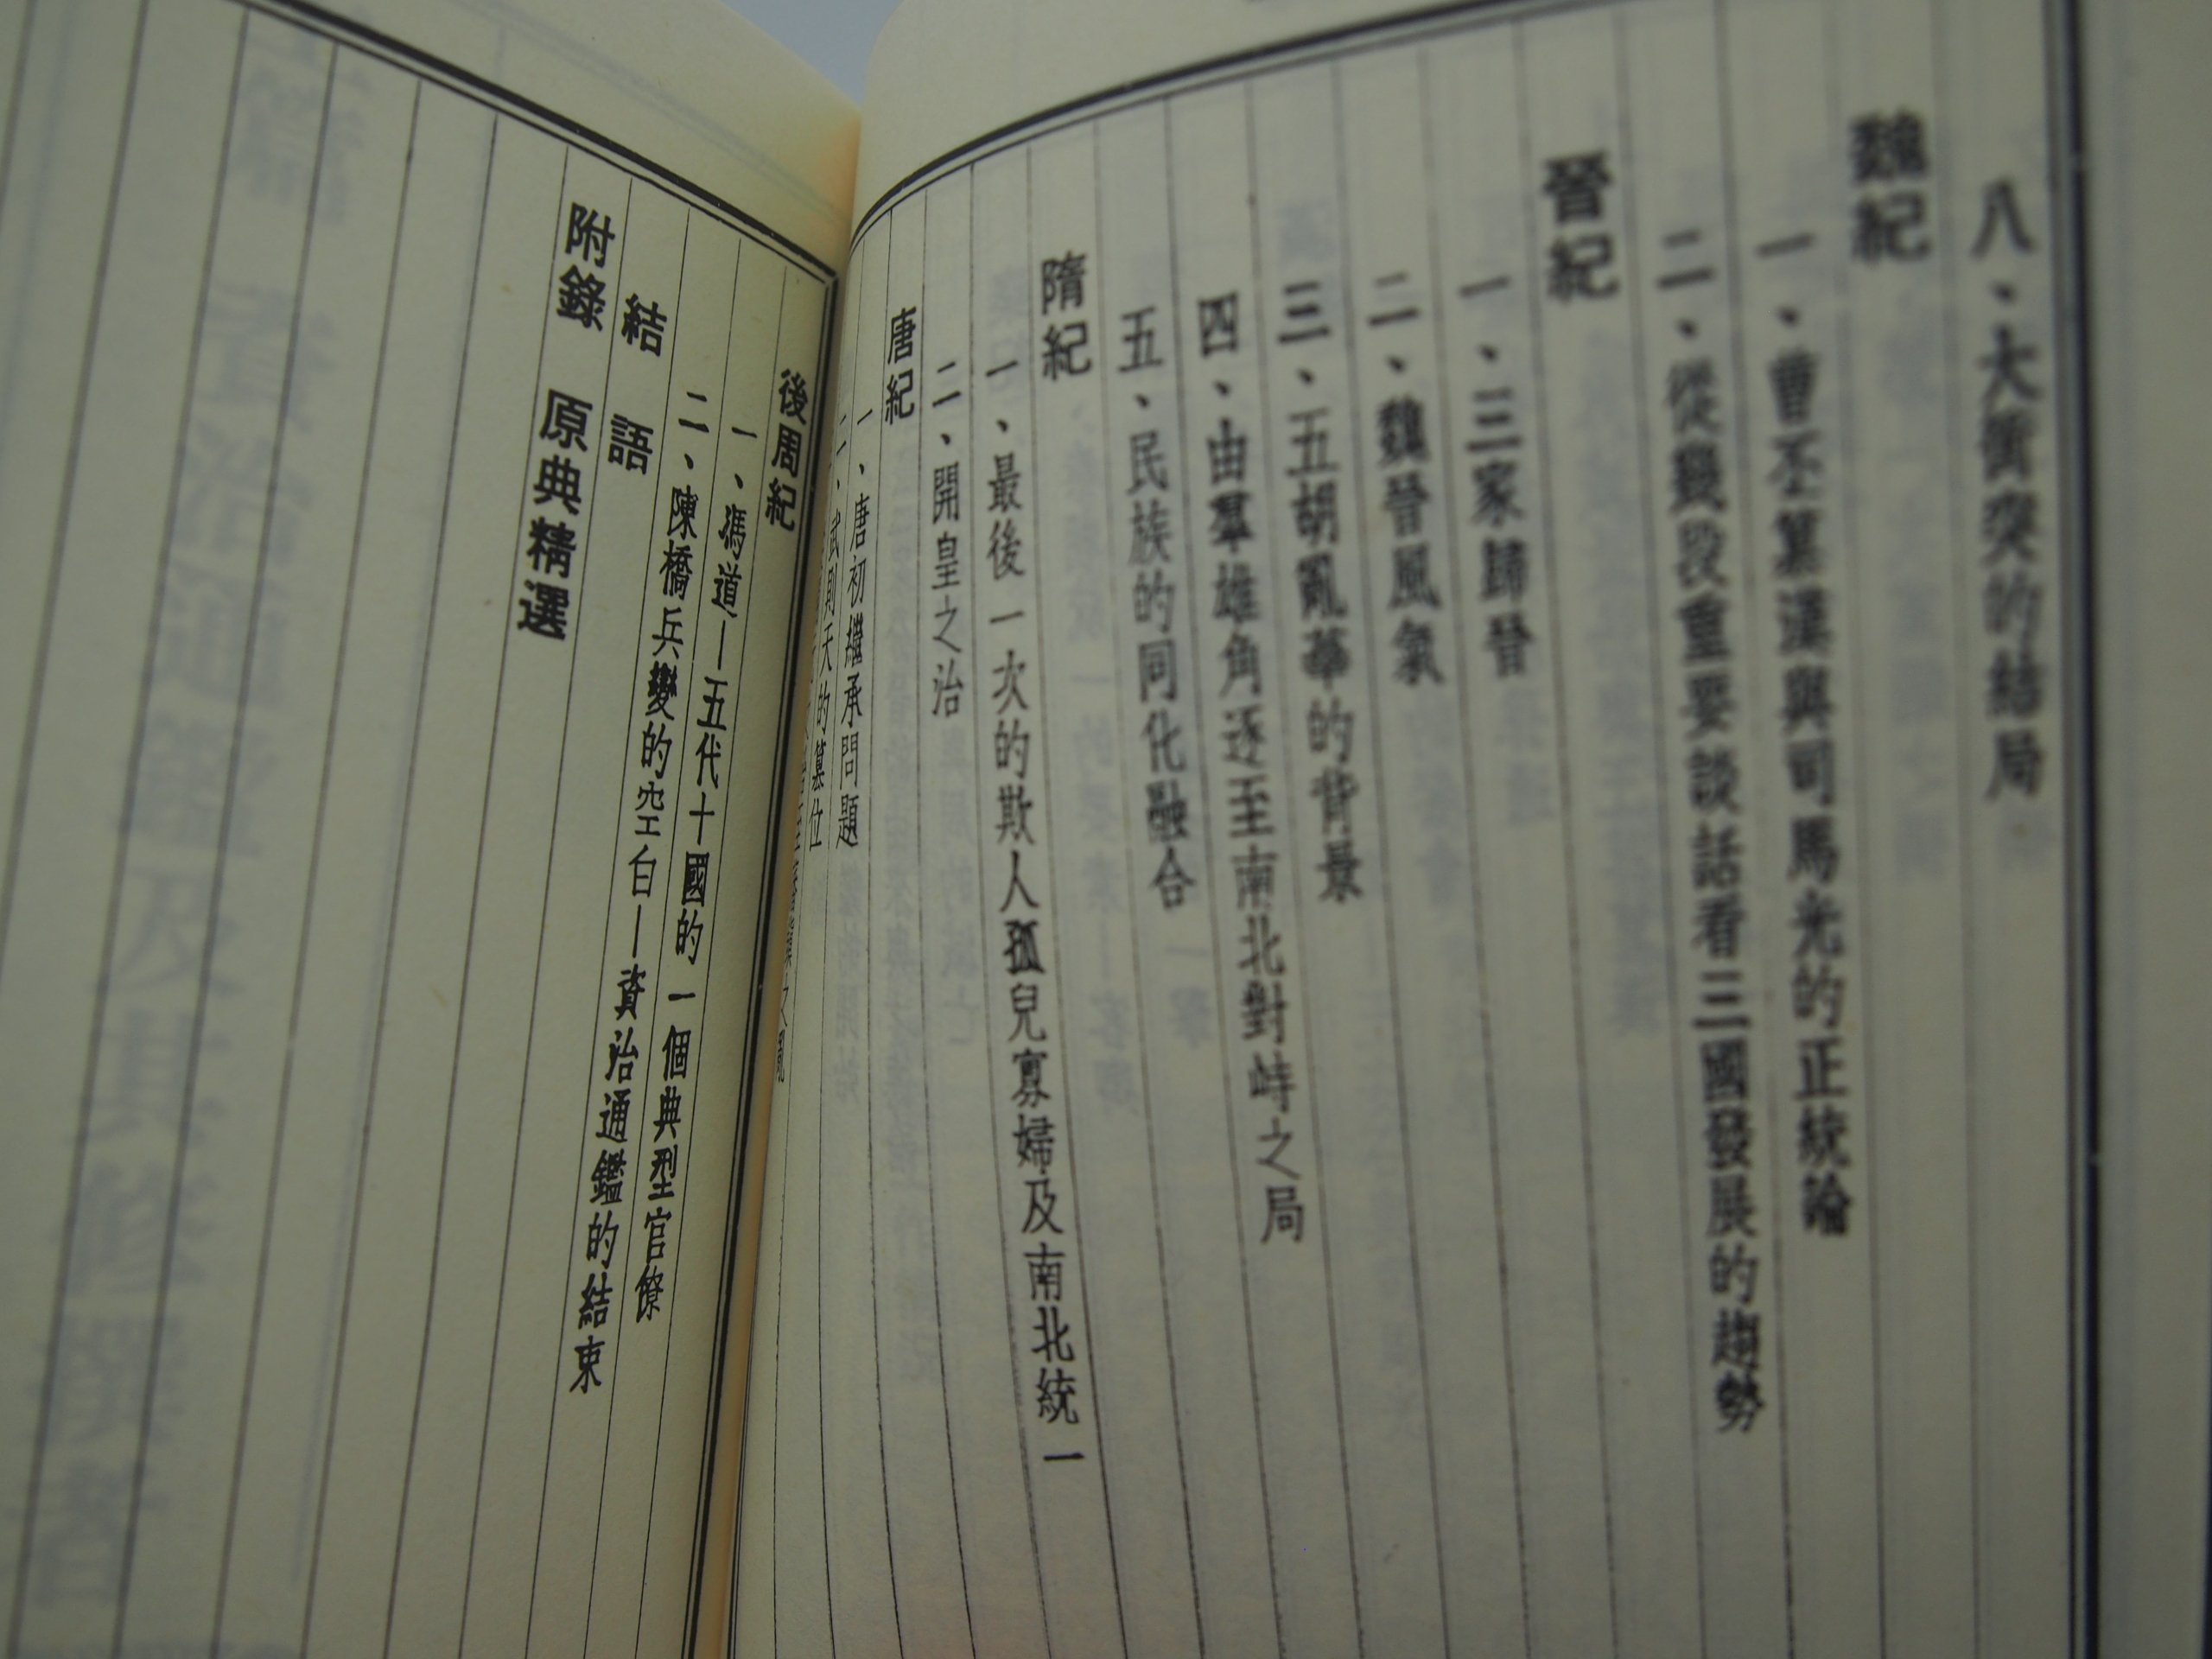 八、大衝突的結局
魏紀
一、曹丕篡漢與司馬光的正統論
二、從幾段重要談話看三國發展的趨勢
晉紀
一、三家歸晉
二、魏晉風氣
三、五胡亂華的背景
四、由羣雄角逐至南北對峙之局
五、民族的同化融合
隋紀
一、最後一次的欺人孤兒寡婦及南北統一
二、開皇之治
唐紀
一、唐初繼承問題
二、武則天的篡位
後周紀
一、馮道—五代十國的一個典型官僚
二、陳橋兵變的空白—資治通鑑的結束
結語
附錄 原典精選